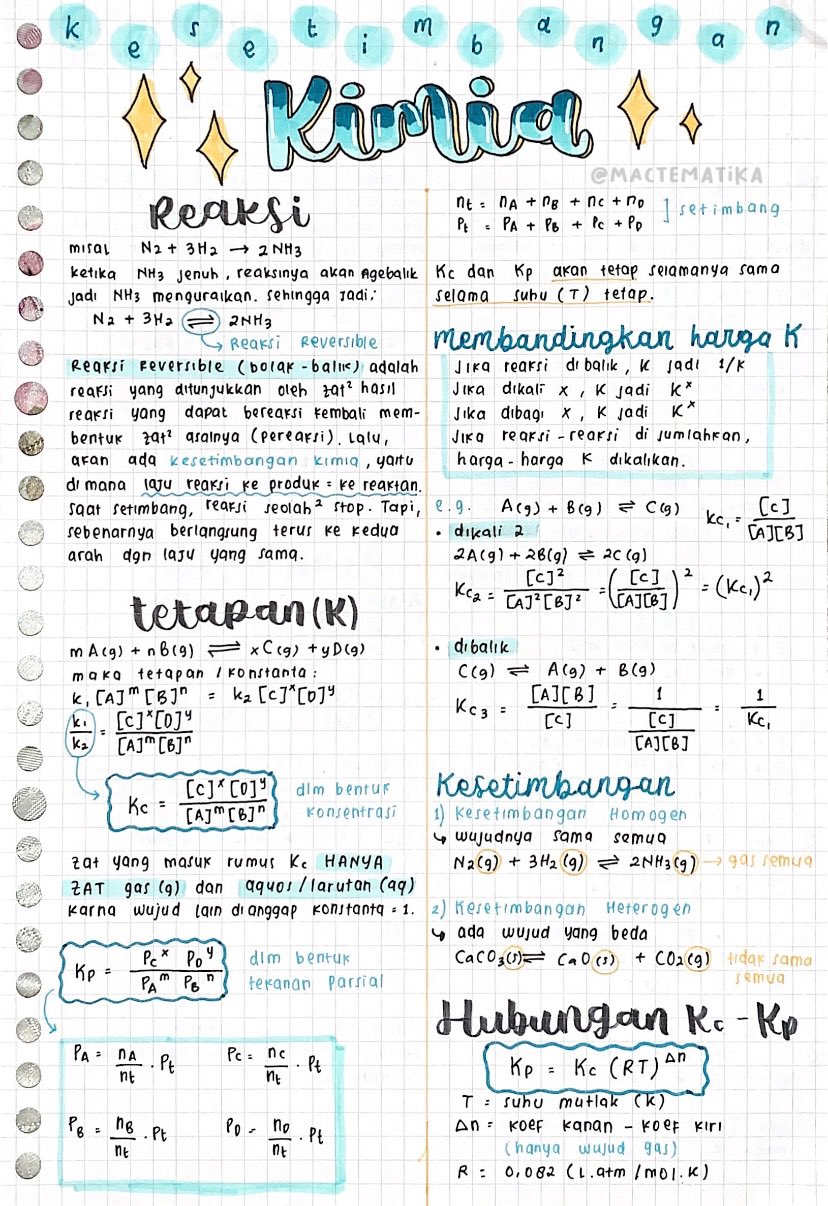 kesetimbangan
Kimia
@MACTEMATIKA
Reaksi
misal N2 + 3H2 → 2NH3
ketika NH3 jenuh, reaksinya akan ngebalik
jadi NH3 menguraikan. sehingga jadi:
N2 + 3H2 ⇌ 2NH3
↳ Reaksi Reversible
Reaksi Reversible (bolak-balik) adalah
reaksi yang ditunjukkan oleh zat² hasil
reaksi yang dapat bereaksi kembali mem-
bentuk zat² asalnya (pereaksi). Lalu,
akan ada kesetimbangan kimia, yaitu
di mana laju reaksi ke produk = ke reaktan.
Saat setimbang, reaksi seolah² stop. Tapi,
sebenarnya berlangsung terus ke kedua
arah dgn laju yang sama.
tetapan (K)
mA(g) + nB(g) ⇌ xC(g) + yD(g)
maka tetapan / konstanta:
k₁[A]ᵐ[B]ⁿ = k₂[C]ˣ[D]ʸ
k₁/k₂ = [C]ˣ[D]ʸ / [A]ᵐ[B]ⁿ
Kc = [C]ˣ[D]ʸ / [A]ᵐ[B]ⁿ dlm bentuk
konsentrasi
zat yang masuk rumus Kc HANYA
ZAT gas (g) dan aquos/larutan (aq)
karna wujud lain dianggap konstanta = 1.
Kp = Pcˣ PDʸ / PAᵐ PBⁿ dlm bentuk
tekanan parsial
PA = nA/nt · Pt PC = nC/nt · Pt
PB = nB/nt · Pt PD = nD/nt · Pt
nt = nA + nB + nC + nD
Pt = PA + PB + PC + PD ] setimbang
Kc dan Kp akan tetap selamanya sama
selama suhu (T) tetap.
membandingkan harga K
Jika reaksi dibalik, K jadi 1/K
Jika dikali x, K jadi Kˣ
Jika dibagi x, K jadi Kˣ
Jika reaksi-reaksi di jumlahkan,
harga-harga K dikalikan.
e.g. A(g) + B(g) ⇌ C(g) Kc₁ = [C] / [A][B]
• dikali 2
2A(g) + 2B(g) ⇌ 2C(g)
Kc₂ = [C]² / [A]²[B]² = ([C] / [A][B])² = (Kc₁)²
• dibalik
C(g) ⇌ A(g) + B(g)
Kc₃ = [A][B] / [C] = 1 / ([C] / [A][B]) = 1 / Kc₁
Kesetimbangan
1) Kesetimbangan Homogen
↳ wujudnya sama semua
N2(g) + 3H2(g) ⇌ 2NH3(g) → gas semua
2) Kesetimbangan Heterogen
↳ ada wujud yang beda
CaCO3(s) ⇌ CaO(s) + CO2(g) tidak sama
semua
Hubungan Kc - Kp
Kp = Kc (RT)^Δn
T = suhu mutlak (K)
Δn = koef kanan - koef kiri
(hanya wujud gas)
R = 0,082 (L.atm/mol.K)